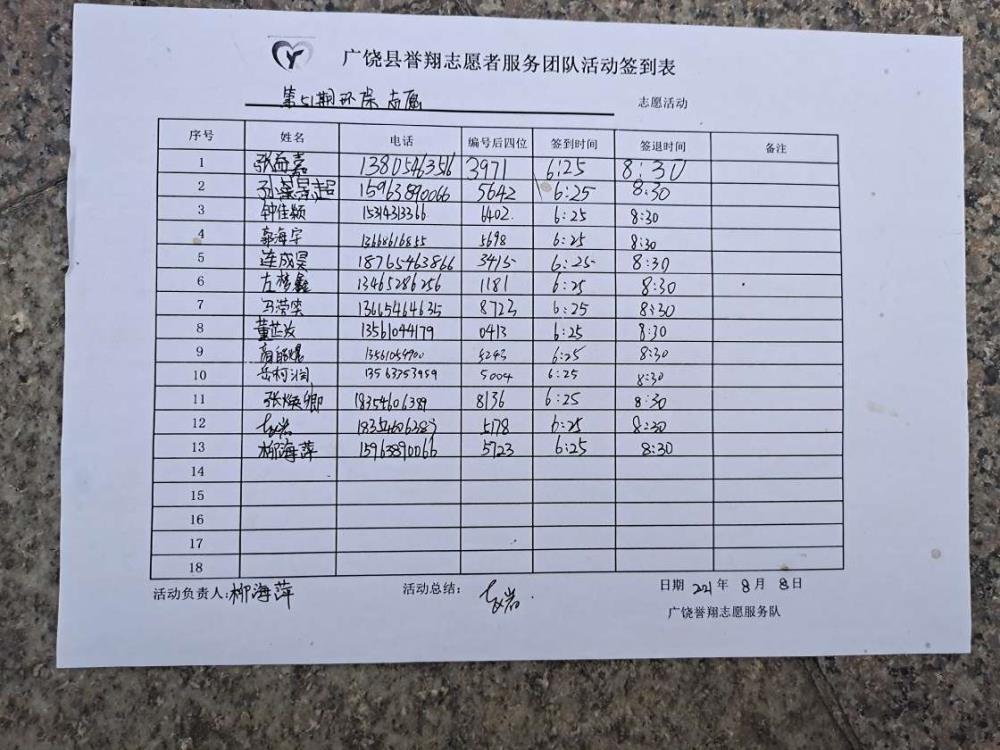 广饶县誉翔志愿者服务团队活动签到表
第51期环保志愿 志愿活动
序号 姓名 电话 编号后四位 签到时间 签退时间 备注
1 13805463516 3971 6:25 8:30
2 15963890066 5642 6:25 8:30
3 钟佳颖 15314313366 6402 6:25 8:30
4 郭海宇 13668616855 5698 6:25 8:30
5 连成昊 18765463866 3415 6:25 8:30
6 左梦鑫 13465286256 1181 6:25 8:30
7 冯滢莹 13665464635 8723 6:25 8:30
8 董芷汝 13561044179 0413 6:25 8:30
9 5243 6:25 8:30
10 岳柯润 13563753959 5004 6:25 8:30
11 张焕卿 18354606389 8136 6:25 8:30
12 5178 6:25 8:30
13 柳海萍 15963890066 5723 6:25 8:30
14
15
16
17
18
活动负责人:柳海萍 活动总结: 日期 2021年 8月 8日
广饶誉翔志愿服务队